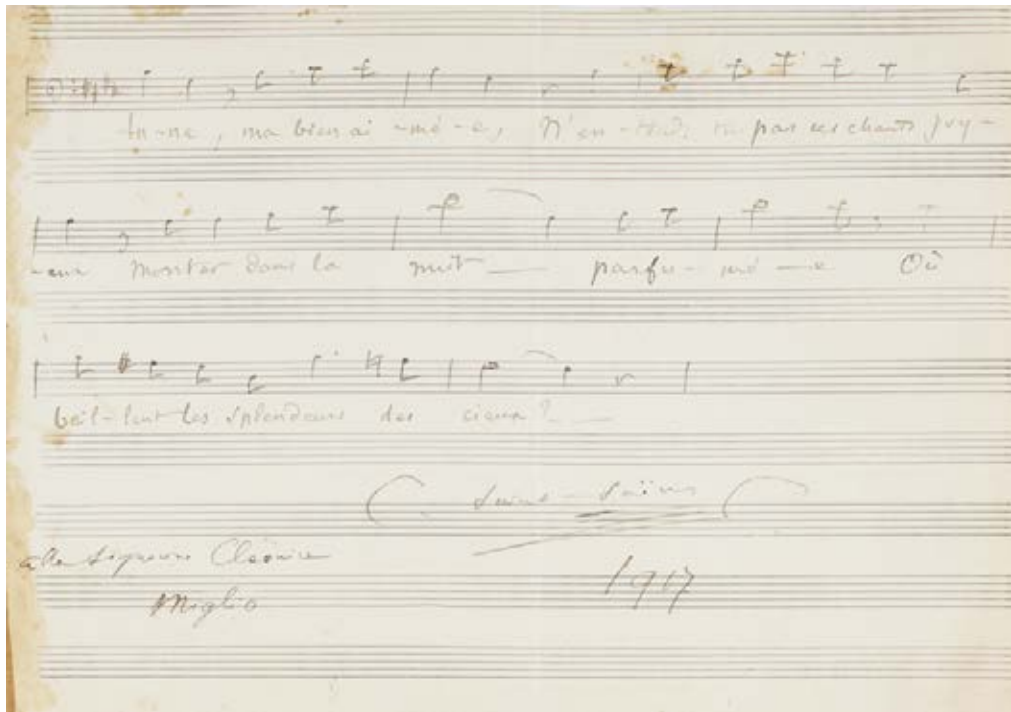 tu-ne, ma bien ai -mé-e, N'en-tends tu pas ces chants joy-
-eux monter dans la nuit — parfu-mé-e Où
bril-lent les splendeurs des cieux? —
Saint-Saëns
alla Signora Cléonice
Miglio
1917